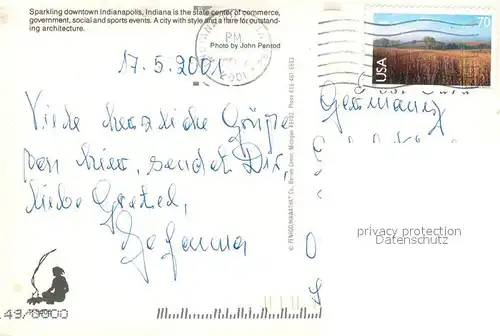 Sparkling downtown Indianapolis, Indiana is the state center of commerce,
government, social and sports events. A city with style and a flare for outstand-
ing architecture.
Photo by John Penrod
PM
2001
70
USA
17. 5. 2001
Germany
Viele herzliche Grüße
von hier, sendet Dir,
liebe Gretel,
Johanna
privacy protection
Datenschutz
© PENROD/HIAWATHA Co., Berrien Center, Michigan 49102, Phone 616-461-6993